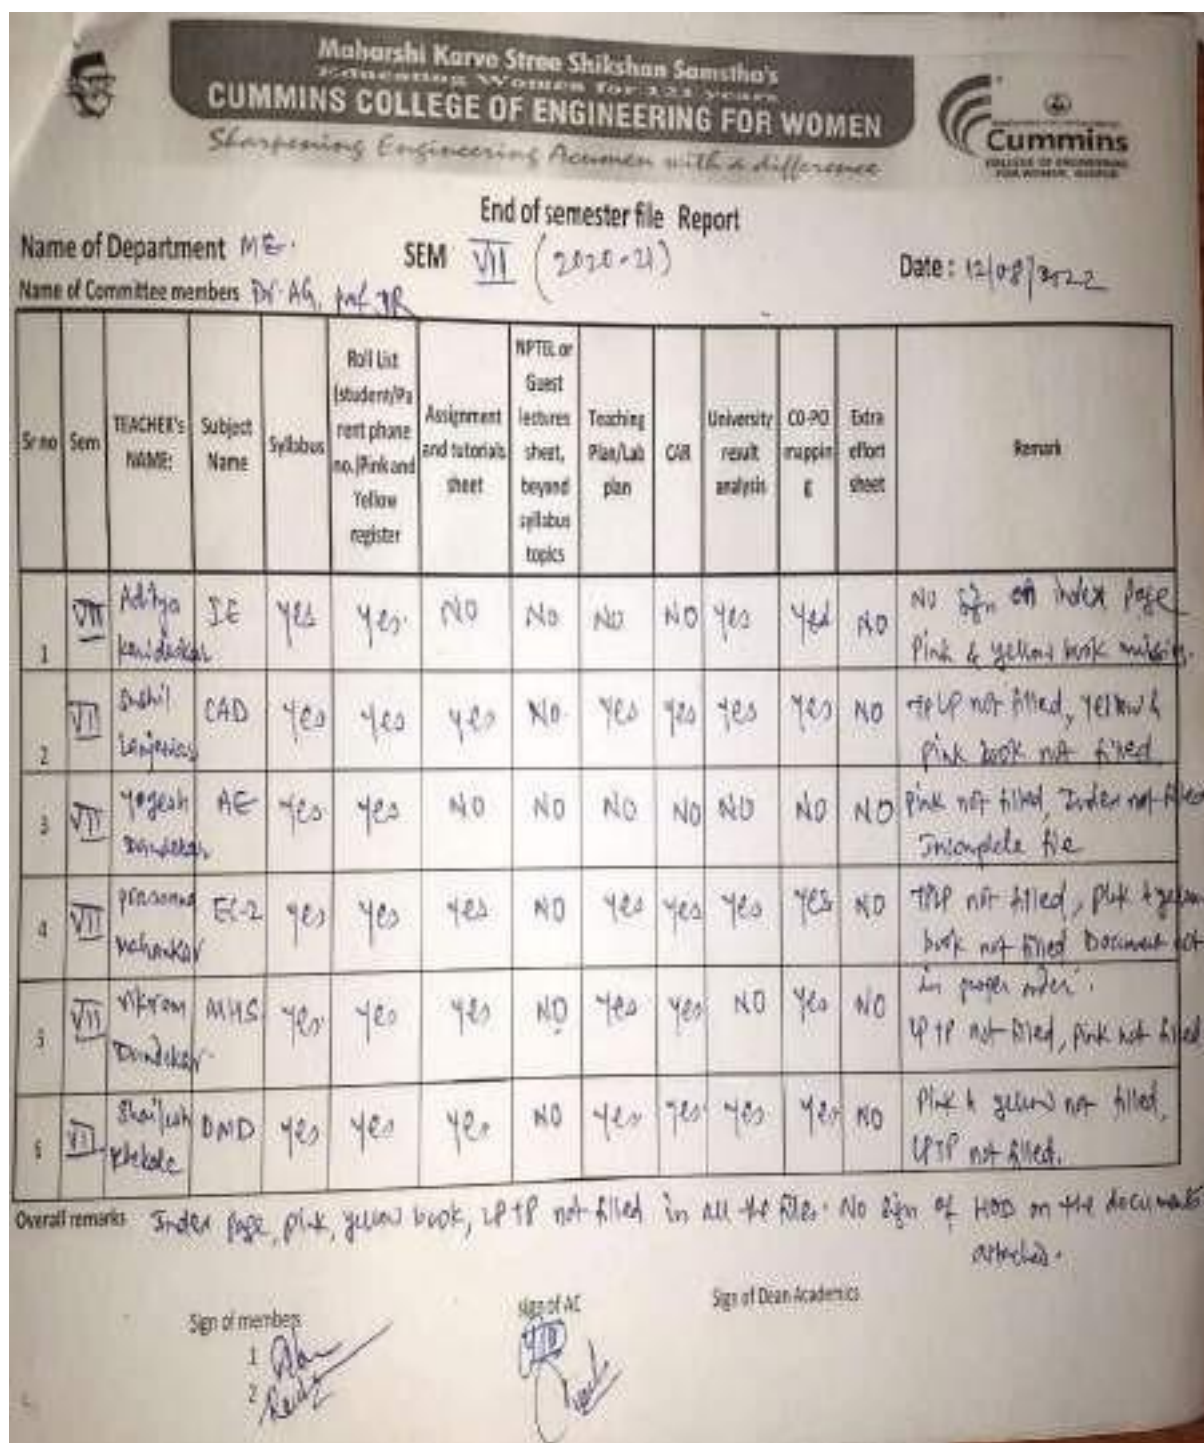 Maharshi Karve Stree Shikshan Samstha's
Educating Women for 121 years
CUMMINS COLLEGE OF ENGINEERING FOR WOMEN
Sharpening Engineering Acumen with a difference
Cummins
COLLEGE OF ENGINEERING
FOR WOMEN, NAGPUR
End of semester file Report
Name of Department ME. SEM VII (2020-21) Date : 12/08/2022
Name of Committee members Dr. AG, prof. JR
Sr no Sem TEACHER's NAME: Subject Name Syllabus Roll List (student/Parent phone no.)Pink and Yellow register Assignment and tutorials sheet NPTEL or Guest lectures sheet, beyond syllabus topics Teaching Plan/Lab plan CAR University result analysis CO-PO mapping Extra effort sheet Remark
1 VII Aditya IE Yes Yes. NO No NO NO Yes Yes NO No sign on index page
Pink & yellow book missing.
2 VII Sushil CAD Yes Yes Yes No. Yes Yes Yes Yes NO TPLP not filled, yellow &
pink book not filled
3 VII Yogesh Dandekar AE Yes Yes NO NO NO NO NO NO NO Pink not filled, Index not filled
Incomplete file
4 VII prasanna Mahankar EC-2 yes Yes Yes NO Yes Yes Yes Yes NO TPLP not filled, pink & yellow
book not filled Document not
in proper order.
5 VII Vikram Dandekar. MHS Yes. Yes Yes NO Yes Yes NO Yes NO LPTP not filled, pink not filled
6 VII Shailesh DMD Yes Yes Yes NO Yes Yes Yes Yes NO Pink & yellow not filled,
LPTP not filled.
Overall remarks Index page, pink, yellow book, LPTP not filled in all the files. No sign of HOD on the documents
attached.
Sign of members sign of AC Sign of Dean Academics
1
2